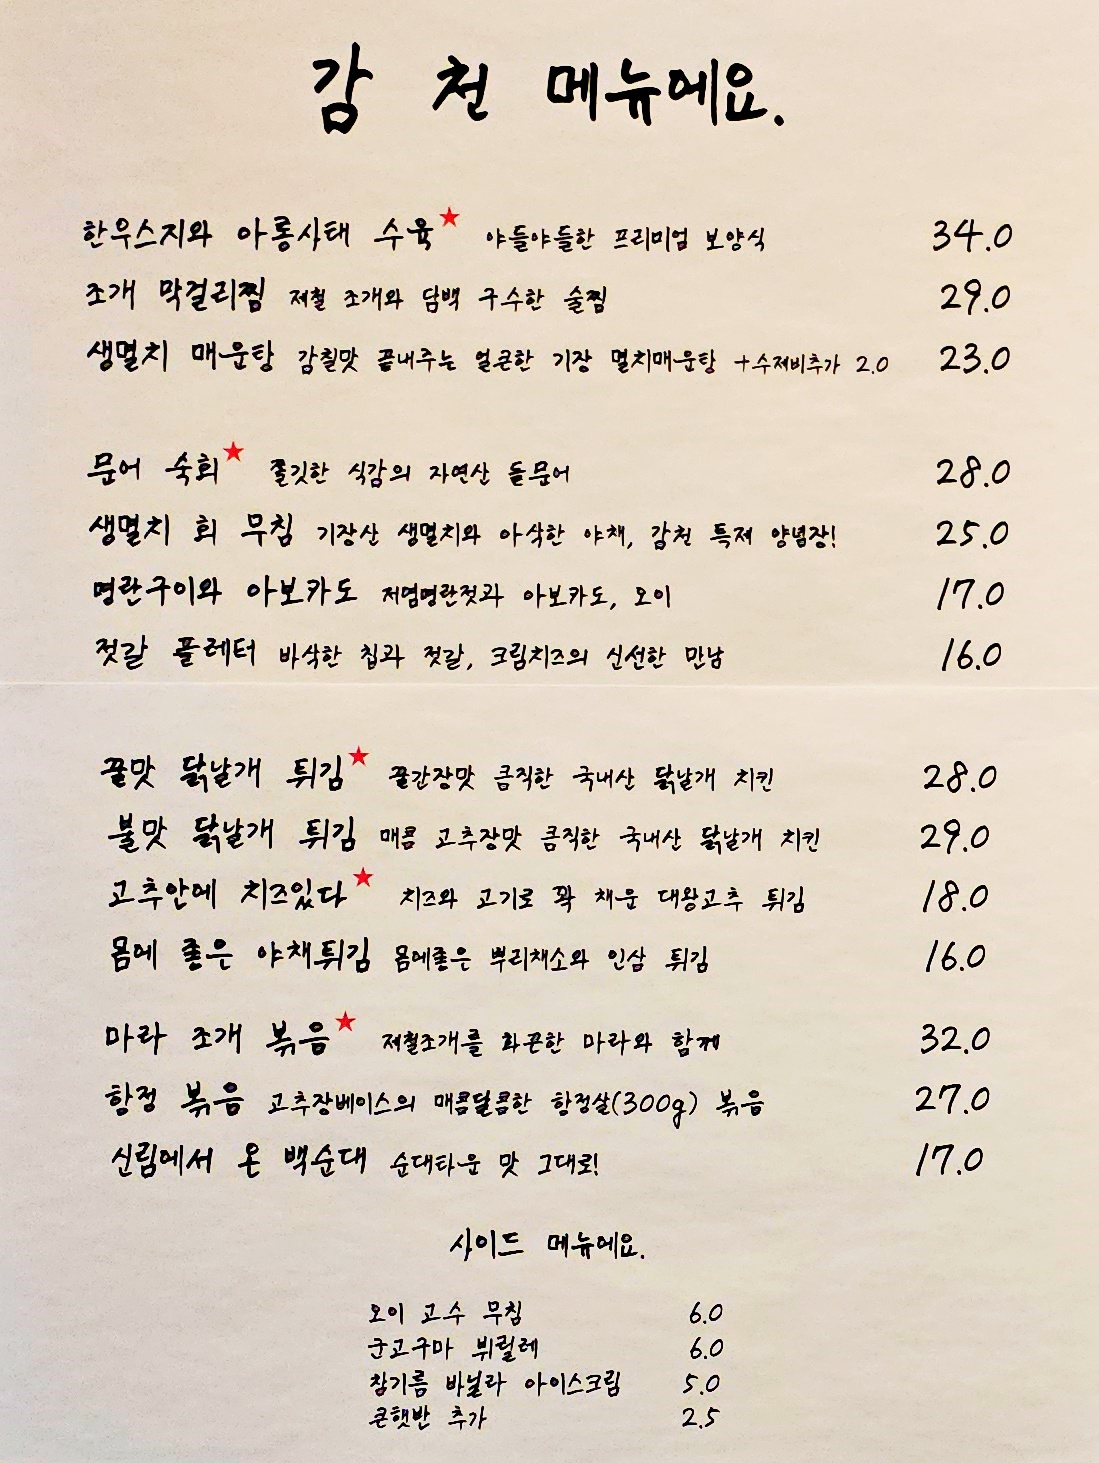 감 천 메뉴에요.
한우스지와 아롱사태 수육★ 야들야들한 프리미엄 보양식 34.0
조개 막걸리찜 제철 조개와 담백 구수한 술찜 29.0
생멸치 매운탕 감칠맛 끝내주는 얼큰한 기장 멸치매운탕 +수제비추가 2.0 23.0
문어 숙회★ 쫄깃한 식감의 자연산 돌문어 28.0
생멸치 회 무침 기장산 생멸치와 아삭한 야채, 감천 특제 양념장! 25.0
명란구이와 아보카도 저염명란젓과 아보카도, 오이 17.0
젓갈 플레터 바삭한 칩과 젓갈, 크림치즈의 신선한 만남 16.0
꿀맛 닭날개 튀김★ 꿀간장맛 큼직한 국내산 닭날개 치킨 28.0
불맛 닭날개 튀김 매콤 고추장맛 큼직한 국내산 닭날개 치킨 29.0
고추안에 치즈있다★ 치즈와 고기로 꽉 채운 대왕고추 튀김 18.0
몸에 좋은 야채튀김 몸에좋은 뿌리채소와 인삼 튀김 16.0
마라 조개 볶음★ 제철조개를 화끈한 마라와 함께 32.0
항정 볶음 고추장베이스의 매콤달콤한 항정살(300g) 볶음 27.0
신림에서 온 백순대 순대타운 맛 그대로! 17.0
사이드 메뉴에요.
오이 고수 무침 6.0
군고구마 뷔륄레 6.0
참기름 바닐라 아이스크림 5.0
큰햇반 추가 2.5